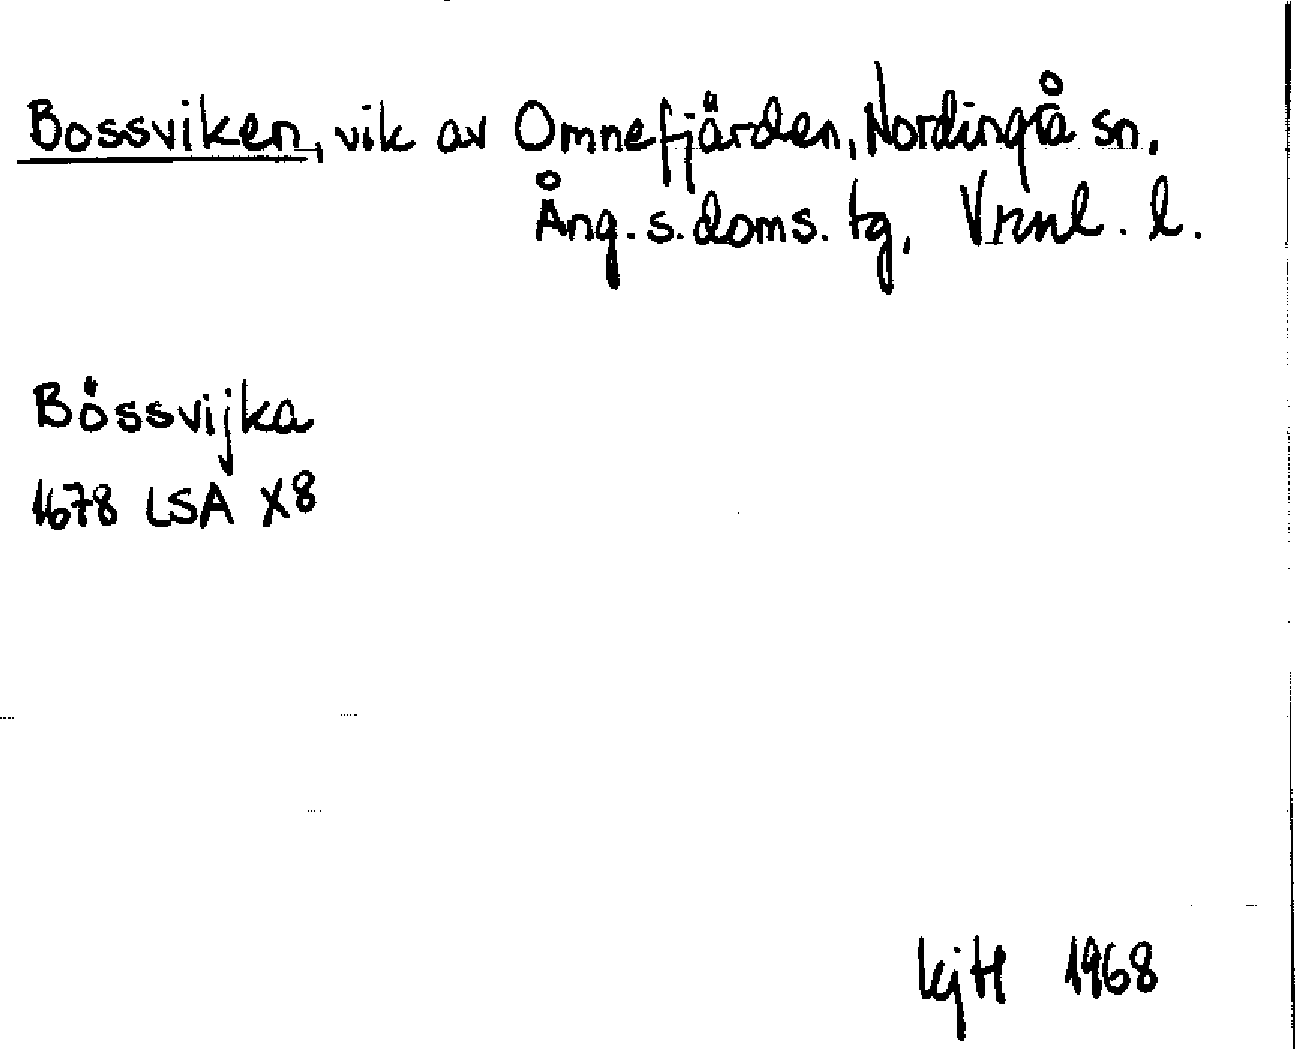 Bossviken, vik av Omnefjärden, Nordingrå sn.
Ång. s. doms. tg, Vrnl. l.
Bössvijka
1678 LSA X8
KjH 1968